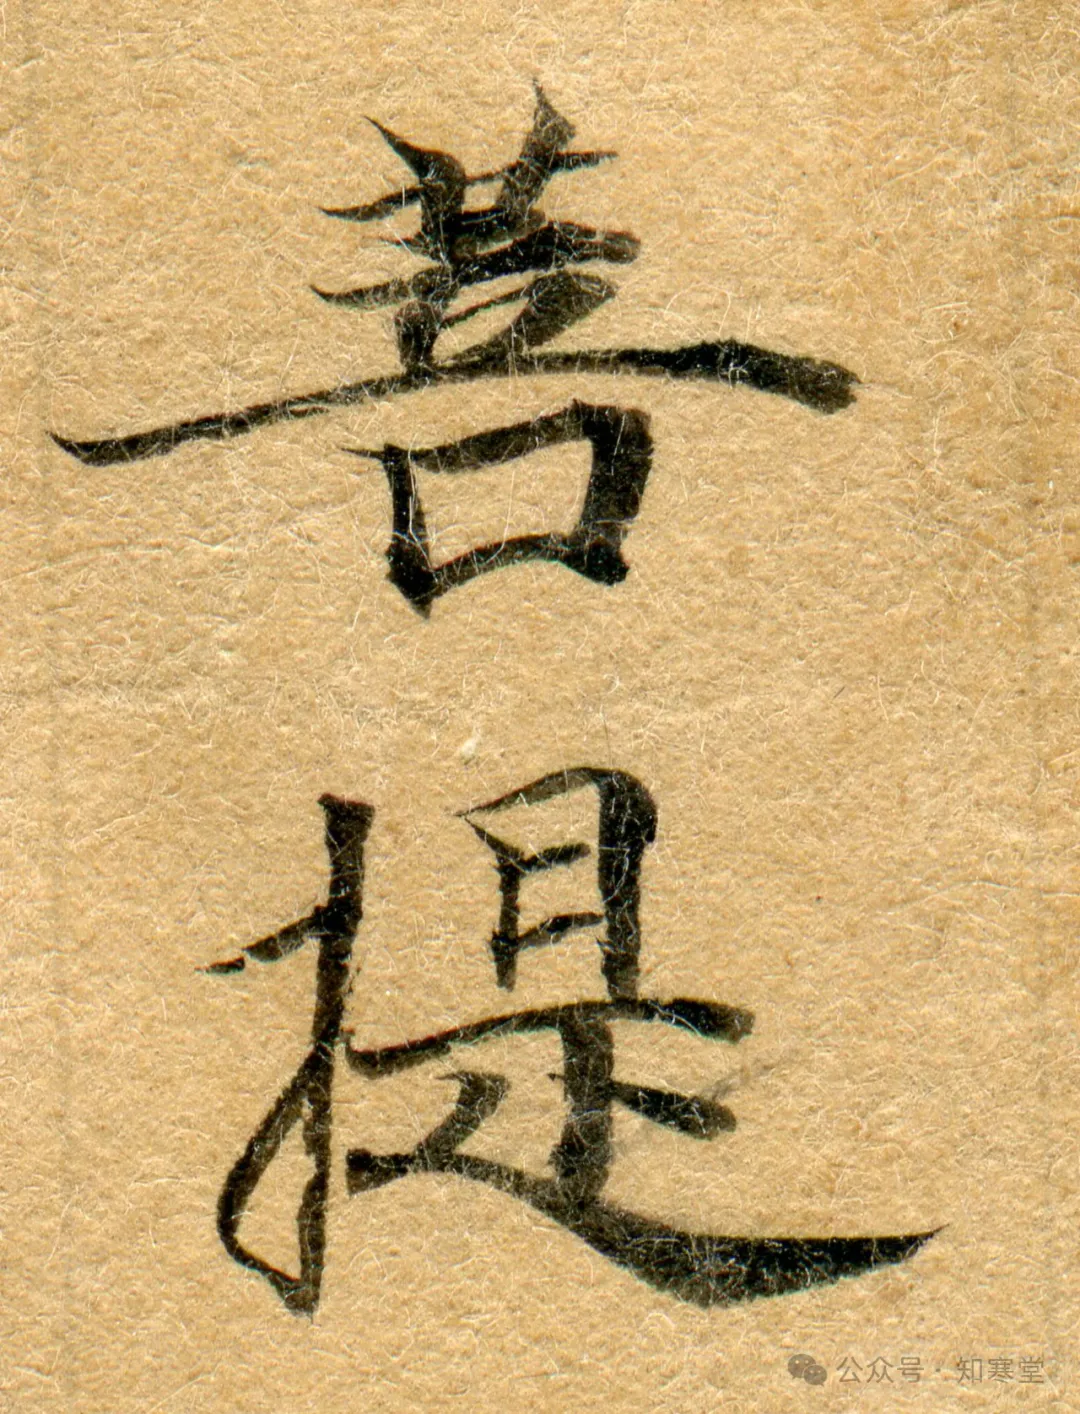 菩提
公众号·知寒堂